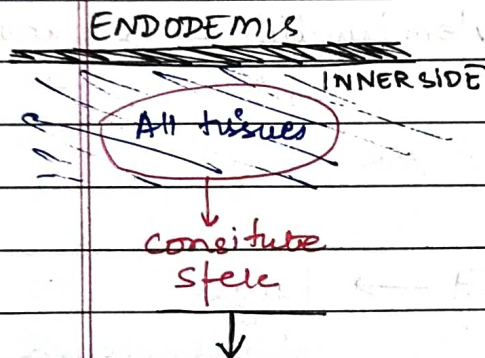 ENDODEMIS
INNER SIDE
All tissues
consitube
stele